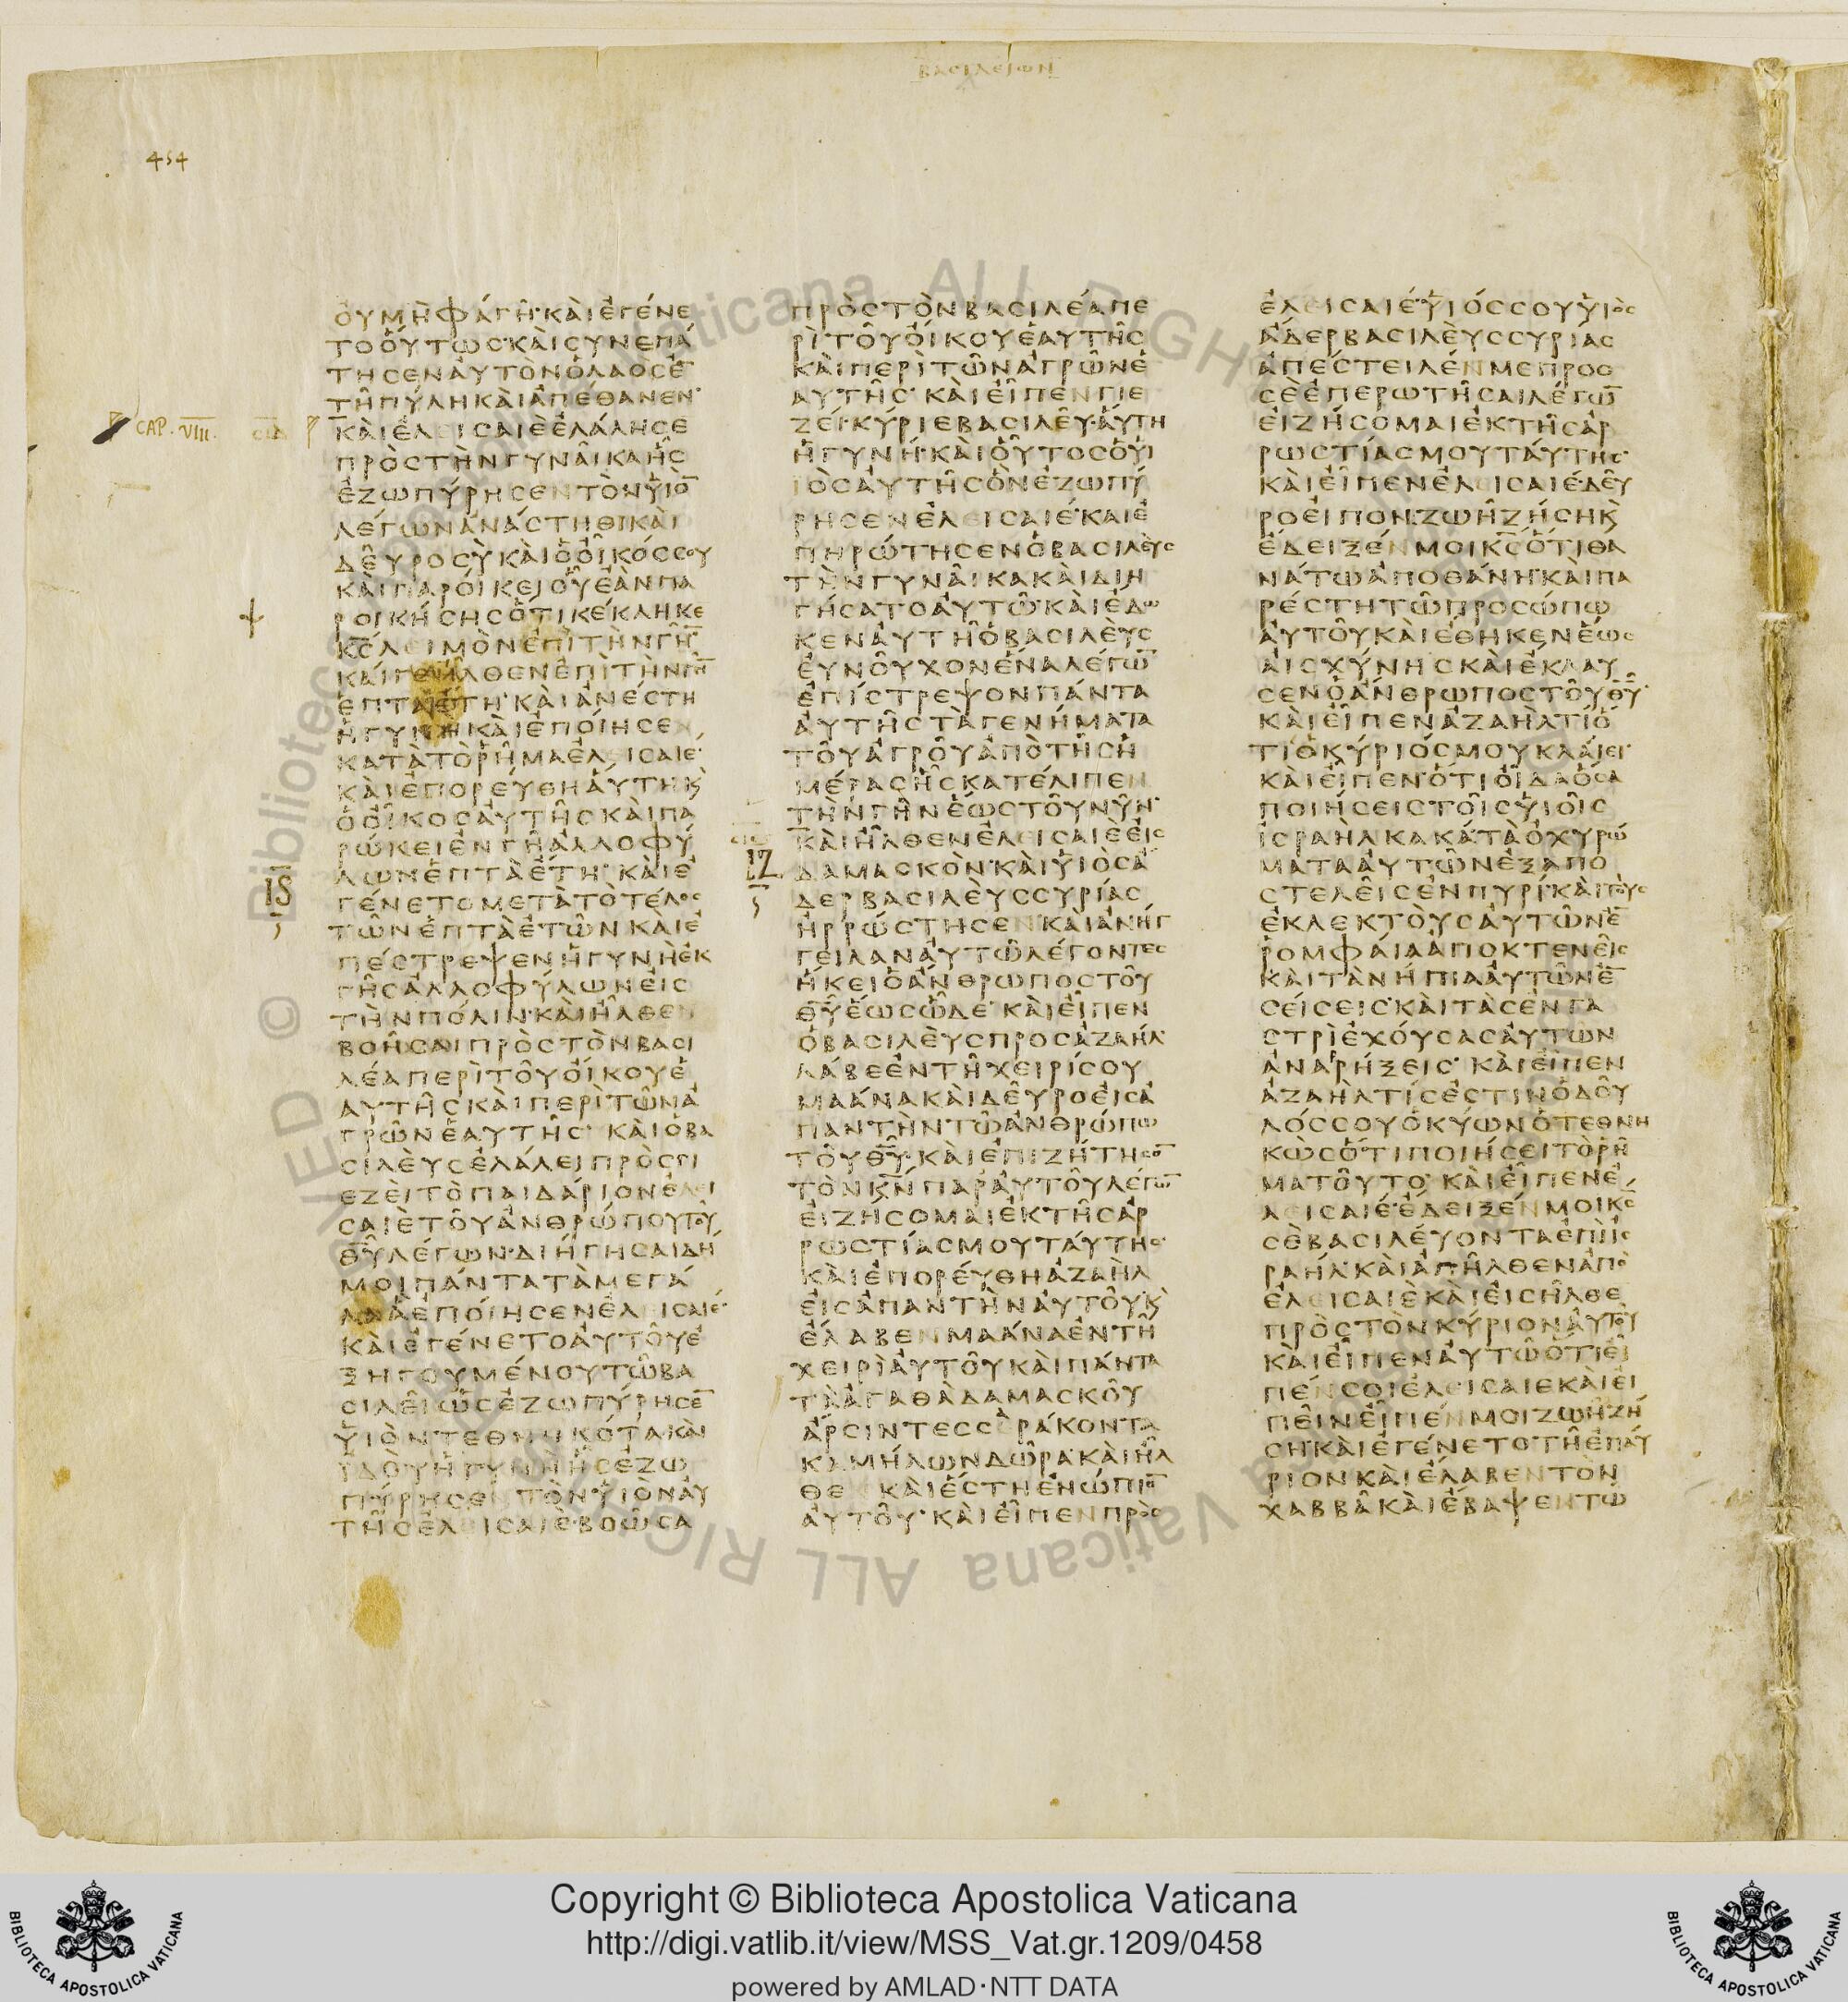 ΒΑΣΙΛΕΙΩΝ
454
ΟΥΜΗΦΑΓΗ·ΚΑΙΕΓΕΝΕ
ΤΟΟΥΤΩΣ·ΚΑΙΣΥΝΕΠΑ
ΤΗΣΕΝΑΥΤΟΝΟΛΑΟΣΕ̅
ΤΗΠΥΛΗΚΑΙΑΠΕΘΑΝΕΝ·
CAP. VIII.
ΚΑΙΕΛΕΙΣΑΙΕΕΛΑΛΗΣΕ
ΠΡΟΣΤΗΝΓΥΝΑΙΚΑΗΣ
ΕΖΩΠΥΡΗΣΕΝΤΟΝΥΙΟ̅
ΛΕΓΩΝΑΝΑΣΤΗΘΙΚΑΙ
ΔΕΥΡΟΣΥΚΑΙΟΟΙΚΟΣΣΟΥ
ΚΑΙΠΑΡΟΙΚΕΙΟΥΕΑΝΠΑ
ΡΟΙΚΗΣΗΣΟΤΙΚΕΚΛΗΚΕ
Κ̅Σ̅ΛΕΙΜΟΝΕΠΙΤΗΝΓΗ̅
ΚΑΙΓΕΗΛΘΕΝΕΠΙΤΗΝΓΗ̅
ΕΠΤΑΕΤΗ·ΚΑΙΑΝΕΣΤΗ
ΗΓΥΝΗΚΑΙΕΠΟΙΗΣΕΝ
ΚΑΤΑΤΟΡΗΜΑΕΛΕΙΣΑΙΕ·
ΚΑΙΕΠΟΡΕΥΘΗΑΥΤΗΚ
ΟΟΙΚΟΣΑΥΤΗΣΚΑΙΠΑ
ΡΩΚΕΙΕΝΓΗΑΛΛΟΦΥ
ΛΩΝΕΠΤΑΕΤΗ·ΚΑΙΕ
ΙϚ
ΓΕΝΕΤΟΜΕΤΑΤΟΤΕΛΟΣ
ΤΩΝΕΠΤΑΕΤΩΝΚΑΙΕ
ΠΕΣΤΡΕΨΕΝΗΓΥΝΗΕΚ
ΓΗΣΑΛΛΟΦΥΛΩΝΕΙΣ
ΤΗΝΠΟΛΙΝ·ΚΑΙΗΛΘΕΝ
ΒΟΗΣΑΙΠΡΟΣΤΟΝΒΑΣΙ
ΛΕΑΠΕΡΙΤΟΥΟΙΚΟΥΕ
ΑΥΤΗΣΚΑΙΠΕΡΙΤΩΝΑ
ΓΡΩΝΕΑΥΤΗΣ·ΚΑΙΟΒΑ
ΣΙΛΕΥΣΕΛΑΛΕΙΠΡΟΣΓΙ
ΕΖΕΙΤΟΠΑΙΔΑΡΙΟΝΕΛΕΙ
ΣΑΙΕΤΟΥΑΝΘΡΩΠΟΥΤΟΥ
Θ̅Υ̅ΛΕΓΩΝ·ΔΙΗΓΗΣΑΙΔΗ
ΜΟΙΠΑΝΤΑΤΑΜΕΓΑ
ΛΑΑΕΠΟΙΗΣΕΝΕΛΕΙΣΑΙΕ·
ΚΑΙΕΓΕΝΕΤΟΑΥΤΟΥΕ
ΞΗΓΟΥΜΕΝΟΥΤΩΒΑ
ΣΙΛΕΙΩΣΕΖΩΠΥΡΗΣΕ̅
ΥΙΟΝΤΕΘΝΗΚΟΤΑΚΑΙ
ΙΔΟΥΗΓΥΝΗΗΣΕΖΩ
ΠΥΡΗΣΕΝΤΟΝΥΙΟΝΑΥ
ΤΗΣΕΛΕΙΣΑΙΕ·ΒΟΩΣΑ
ΠΡΟΣΤΟΝΒΑΣΙΛΕΑΠΕ
ΡΙΤΟΥΟΙΚΟΥΕΑΥΤΗΣ
ΚΑΙΠΕΡΙΤΩΝΑΓΡΩΝΕ
ΑΥΤΗΣ·ΚΑΙΕΙΠΕΝΓΙΕ
ΖΕΙ·ΚΥΡΙΕΒΑΣΙΛΕΥ·ΑΥΤΗ
ΗΓΥΝΗ·ΚΑΙΟΥΤΟΣΟΥΙ
ΙΟΣΑΥΤΗΣΟΝΕΖΩΠΥ
ΡΗΣΕΝΕΛΕΙΣΑΙΕ·ΚΑΙΕ
ΠΗΡΩΤΗΣΕΝΟΒΑΣΙΛΕΥΣ
ΤΗΝΓΥΝΑΙΚΑΚΑΙΔΙΗ
ΓΗΣΑΤΟΑΥΤΩ·ΚΑΙΕΔΩ
ΚΕΝΑΥΤΗΟΒΑΣΙΛΕΥΣ
ΕΥΝΟΥΧΟΝΕΝΑΛΕΓΩ̅
ΕΠΙΣΤΡΕΨΟΝΠΑΝΤΑ
ΑΥΤΗΣΤΑΓΕΝΗΜΑΤΑ
ΤΟΥΑΓΡΟΥΑΠΟΤΗΣΗ
ΜΕΡΑΣΗΣΚΑΤΕΛΙΠΕΝ
ΤΗΝΓΗΝΕΩΣΤΟΥΝΥΝ·
ΚΑΙΗΛΘΕΝΕΛΕΙΣΑΙΕΕΙΣ
ΙΖ
ΔΑΜΑΣΚΟΝ·ΚΑΙΥΙΟΣΑ
ΔΕΡΒΑΣΙΛΕΥΣΣΥΡΙΑΣ
ΗΡΡΩΣΤΗΣΕΝ·ΚΑΙΑΝΗΓ
ΓΕΙΛΑΝΑΥΤΩΛΕΓΟΝΤΕΣ
ΗΚΕΙΟΑΝΘΡΩΠΟΣΤΟΥ
Θ̅Υ̅ΕΩΣΩΔΕ·ΚΑΙΕΙΠΕΝ
ΟΒΑΣΙΛΕΥΣΠΡΟΣΑΖΑΗΛ·
ΛΑΒΕΕΝΤΗΧΕΙΡΙΣΟΥ
ΜΑΑΝΑΚΑΙΔΕΥΡΟΕΙΣΑ
ΠΑΝΤΗΝΤΩΑΝΘΡΩΠΩ
ΤΟΥΘ̅Υ̅·ΚΑΙΕΠΙΖΗΤΗΣΟ̅
ΤΟΝΚ̅Ν̅ΠΑΡΑΥΤΟΥΛΕΓΩ̅
ΕΙΖΗΣΟΜΑΙΕΚΤΗΣΑΡ
ΡΩΣΤΙΑΣΜΟΥΤΑΥΤΗΣ·
ΚΑΙΕΠΟΡΕΥΘΗΑΖΑΗΛ
ΕΙΣΑΠΑΝΤΗΝΑΥΤΟΥΚ
ΕΛΑΒΕΝΜΑΑΝΑΕΝΤΗ
ΧΕΙΡΙΑΥΤΟΥΚΑΙΠΑΝΤΑ
ΤΑΑΓΑΘΑΔΑΜΑΣΚΟΥ
ΑΡΣΙΝΤΕΣΣΕΡΑΚΟΝΤΑ
ΚΑΜΗΛΩΝΔΩΡΑ·ΚΑΙΗΛ
ΘΕΝΚΑΙΕΣΤΗΕΝΩΠΙΟ̅
ΑΥΤΟΥ·ΚΑΙΕΙΠΕΝΠΡΟΣ
ΕΛΕΙΣΑΙΕ·ΥΙΟΣΣΟΥΥΙΟΣ
ΑΔΕΡΒΑΣΙΛΕΥΣΣΥΡΙΑΣ
ΑΠΕΣΤΕΙΛΕΝΜΕΠΡΟΣ
ΣΕΕΠΕΡΩΤΗΣΑΙΛΕΓΩ̅
ΕΙΖΗΣΟΜΑΙΕΚΤΗΣΑΡ
ΡΩΣΤΙΑΣΜΟΥΤΑΥΤΗΣ·
ΚΑΙΕΙΠΕΝΕΛΕΙΣΑΙΕ·ΔΕΥ
ΡΟΕΙΠΟΝ·ΖΩΗΖΗΣΗΚ
ΕΔΕΙΞΕΝΜΟΙΚ̅Σ̅ΟΤΙΘΑ
ΝΑΤΩΑΠΟΘΑΝΗ·ΚΑΙΠΑ
ΡΕΣΤΗΤΩΠΡΟΣΩΠΩ
ΑΥΤΟΥΚΑΙΕΘΗΚΕΝΕΩΣ
ΑΙΣΧΥΝΗΣΚΑΙΕΚΛΑΥ
ΣΕΝΟΑΝΘΡΩΠΟΣΤΟΥΘ̅Υ̅·
ΚΑΙΕΙΠΕΝΑΖΑΗΛΤΙΟ
ΤΙΟΚΥΡΙΟΣΜΟΥΚΛΑΙΕΙ·
ΚΑΙΕΙΠΕΝ·ΟΤΙΟΙΔΑΟΣΑ
ΠΟΙΗΣΕΙΣΤΟΙΣΥΙΟΙΣ
ΙΣΡΑΗΛΚΑΚΑ·ΤΑΟΧΥΡΩ
ΜΑΤΑΑΥΤΩΝΕΞΑΠΟ
ΣΤΕΛΕΙΣΕΝΠΥΡΙ·ΚΑΙΤΟΥΣ
ΕΚΛΕΚΤΟΥΣΑΥΤΩΝΕ̅
ΡΟΜΦΑΙΑΑΠΟΚΤΕΝΕΙΣ
ΚΑΙΤΑΝΗΠΙΑΑΥΤΩΝΕ̅
ΣΕΙΣΕΙΣ·ΚΑΙΤΑΣΕΝΓΑ
ΣΤΡΙΕΧΟΥΣΑΣΑΥΤΩΝ
ΑΝΑΡΡΗΞΕΙΣ·ΚΑΙΕΙΠΕΝ
ΑΖΑΗΛΤΙΣΕΣΤΙΝΟΔΟΥ
ΛΟΣΣΟΥΟΚΥΩΝΟΤΕΘΝΗ
ΚΩΣΟΤΙΠΟΙΗΣΕΙΤΟΡΗ
ΜΑΤΟΥΤΟ·ΚΑΙΕΙΠΕΝΕ
ΛΕΙΣΑΙΕ·ΕΔΕΙΞΕΝΜΟΙΚ̅Σ̅
ΣΕΒΑΣΙΛΕΥΟΝΤΑΕΠΙΙΣ
ΡΑΗΛ·ΚΑΙΑΠΗΛΘΕΝΑΠΟ
ΕΛΕΙΣΑΙΕΚΑΙΕΙΣΗΛΘΕ
ΠΡΟΣΤΟΝΚΥΡΙΟΝΑΥΤΟΥ
ΚΑΙΕΙΠΕΝΑΥΤΩΟΤΙΕΙ
ΠΕΝΣΟΙΕΛΕΙΣΑΙΕΚΑΙΕΙ
ΠΕΙΝΕΙΠΕΝΜΟΙΖΩΗΖΗ
ΣΗ·ΚΑΙΕΓΕΝΕΤΟΤΗΕΠΑΥ
ΡΙΟΝΚΑΙΕΛΑΒΕΝΤΟΝ
ΧΑΒΒΑΚΑΙΕΒΑΨΕΝΤΩ
Copyright © Biblioteca Apostolica Vaticana
http://digi.vatlib.it/view/MSS_Vat.gr.1209/0458
powered by AMLAD·NTT DATA
BIBLIOTECA APOSTOLICA VATICANA
BIBLIOTECA APOSTOLICA VATICANA